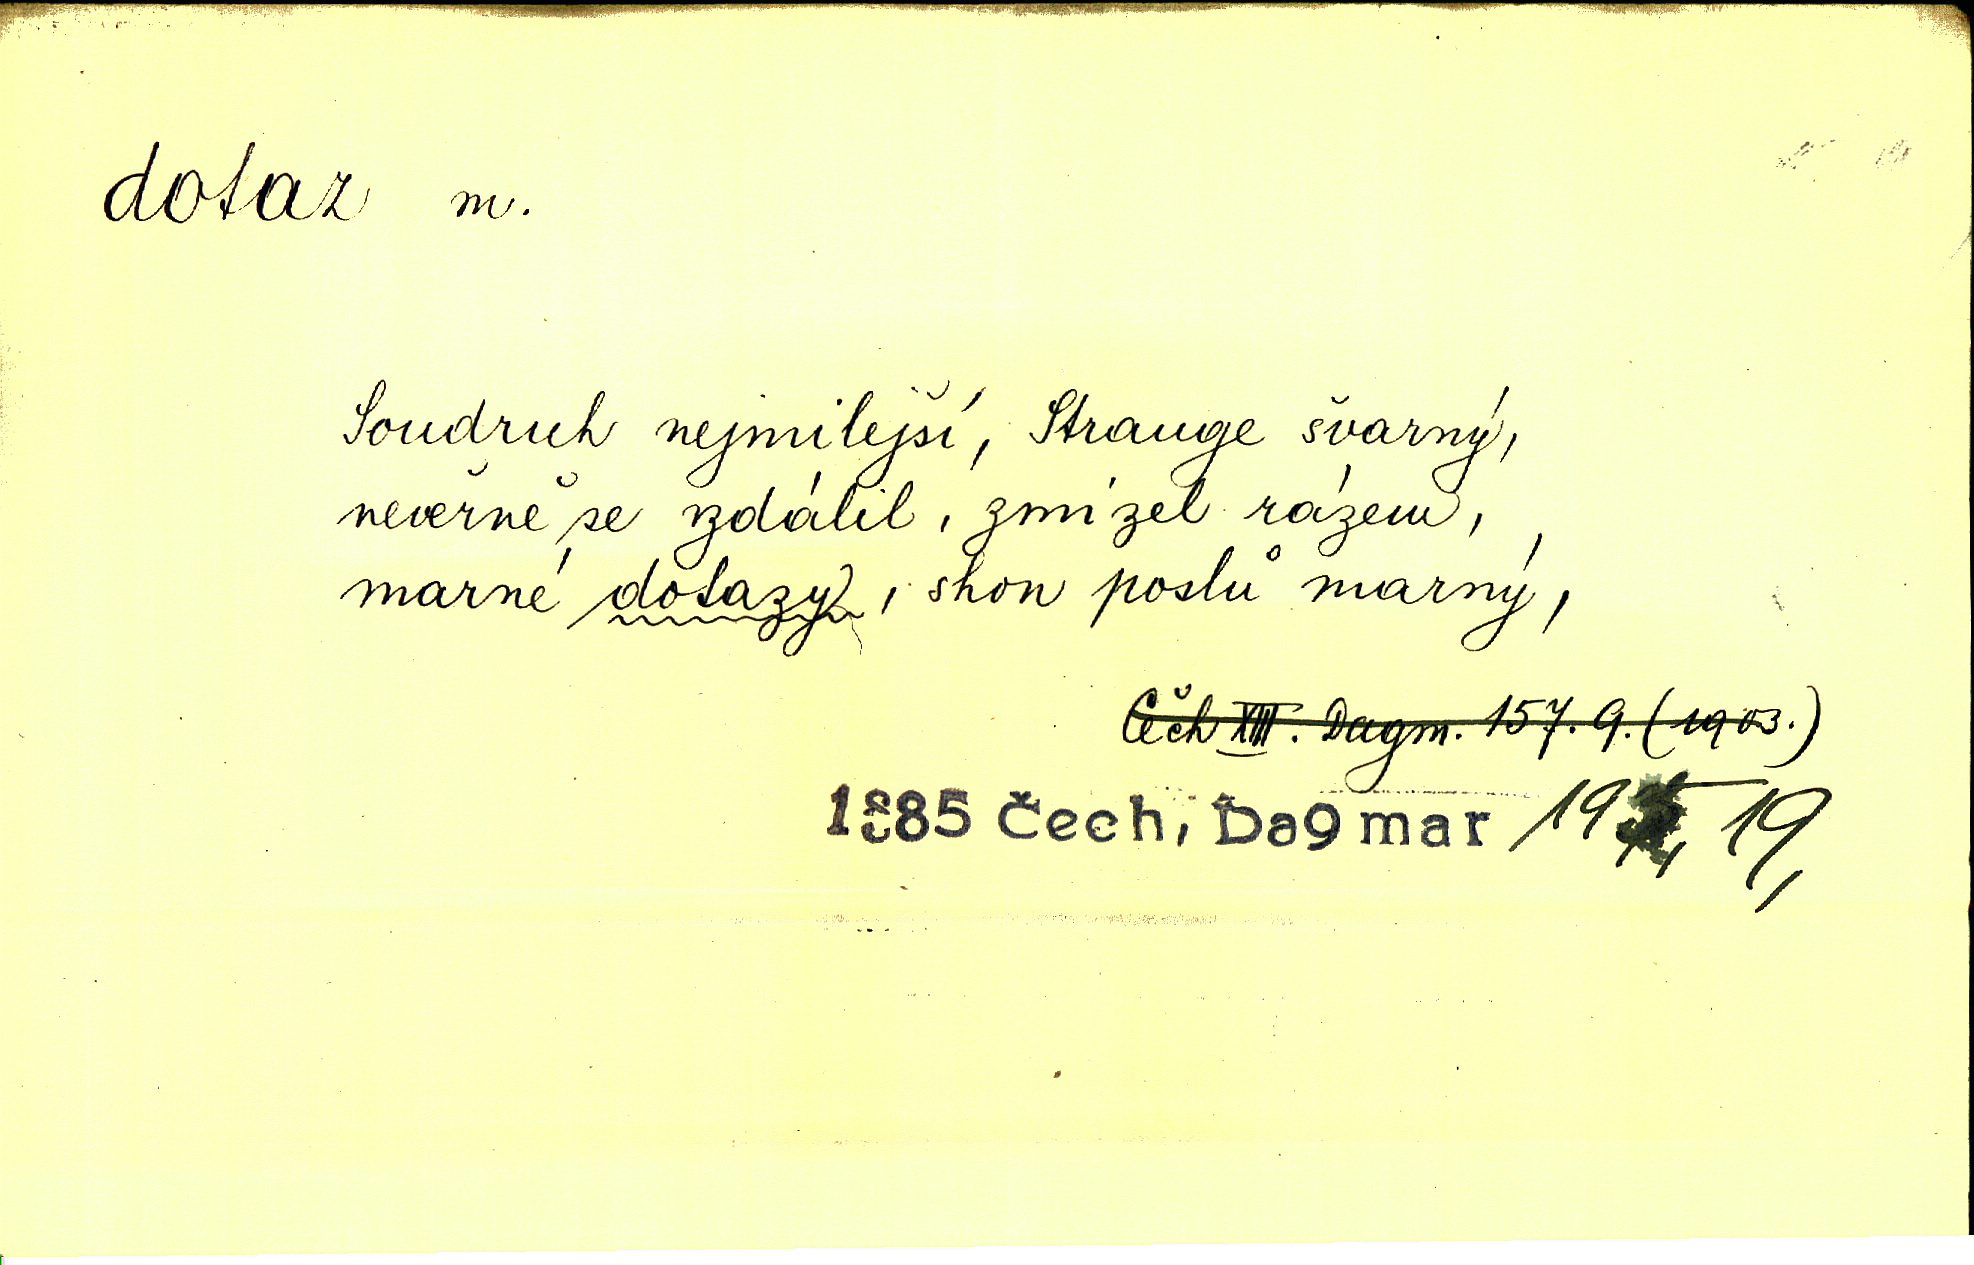 dotaz m.
Soudruh nejmilejší, Strange švarný,
nevěrně se vzdálil, zmizel rázem,
marné dotazy, shon poslů marný,
Čech XIII. Dagm. 157. 9. (1903.)
1885 Čech, Dagmar 19 19,